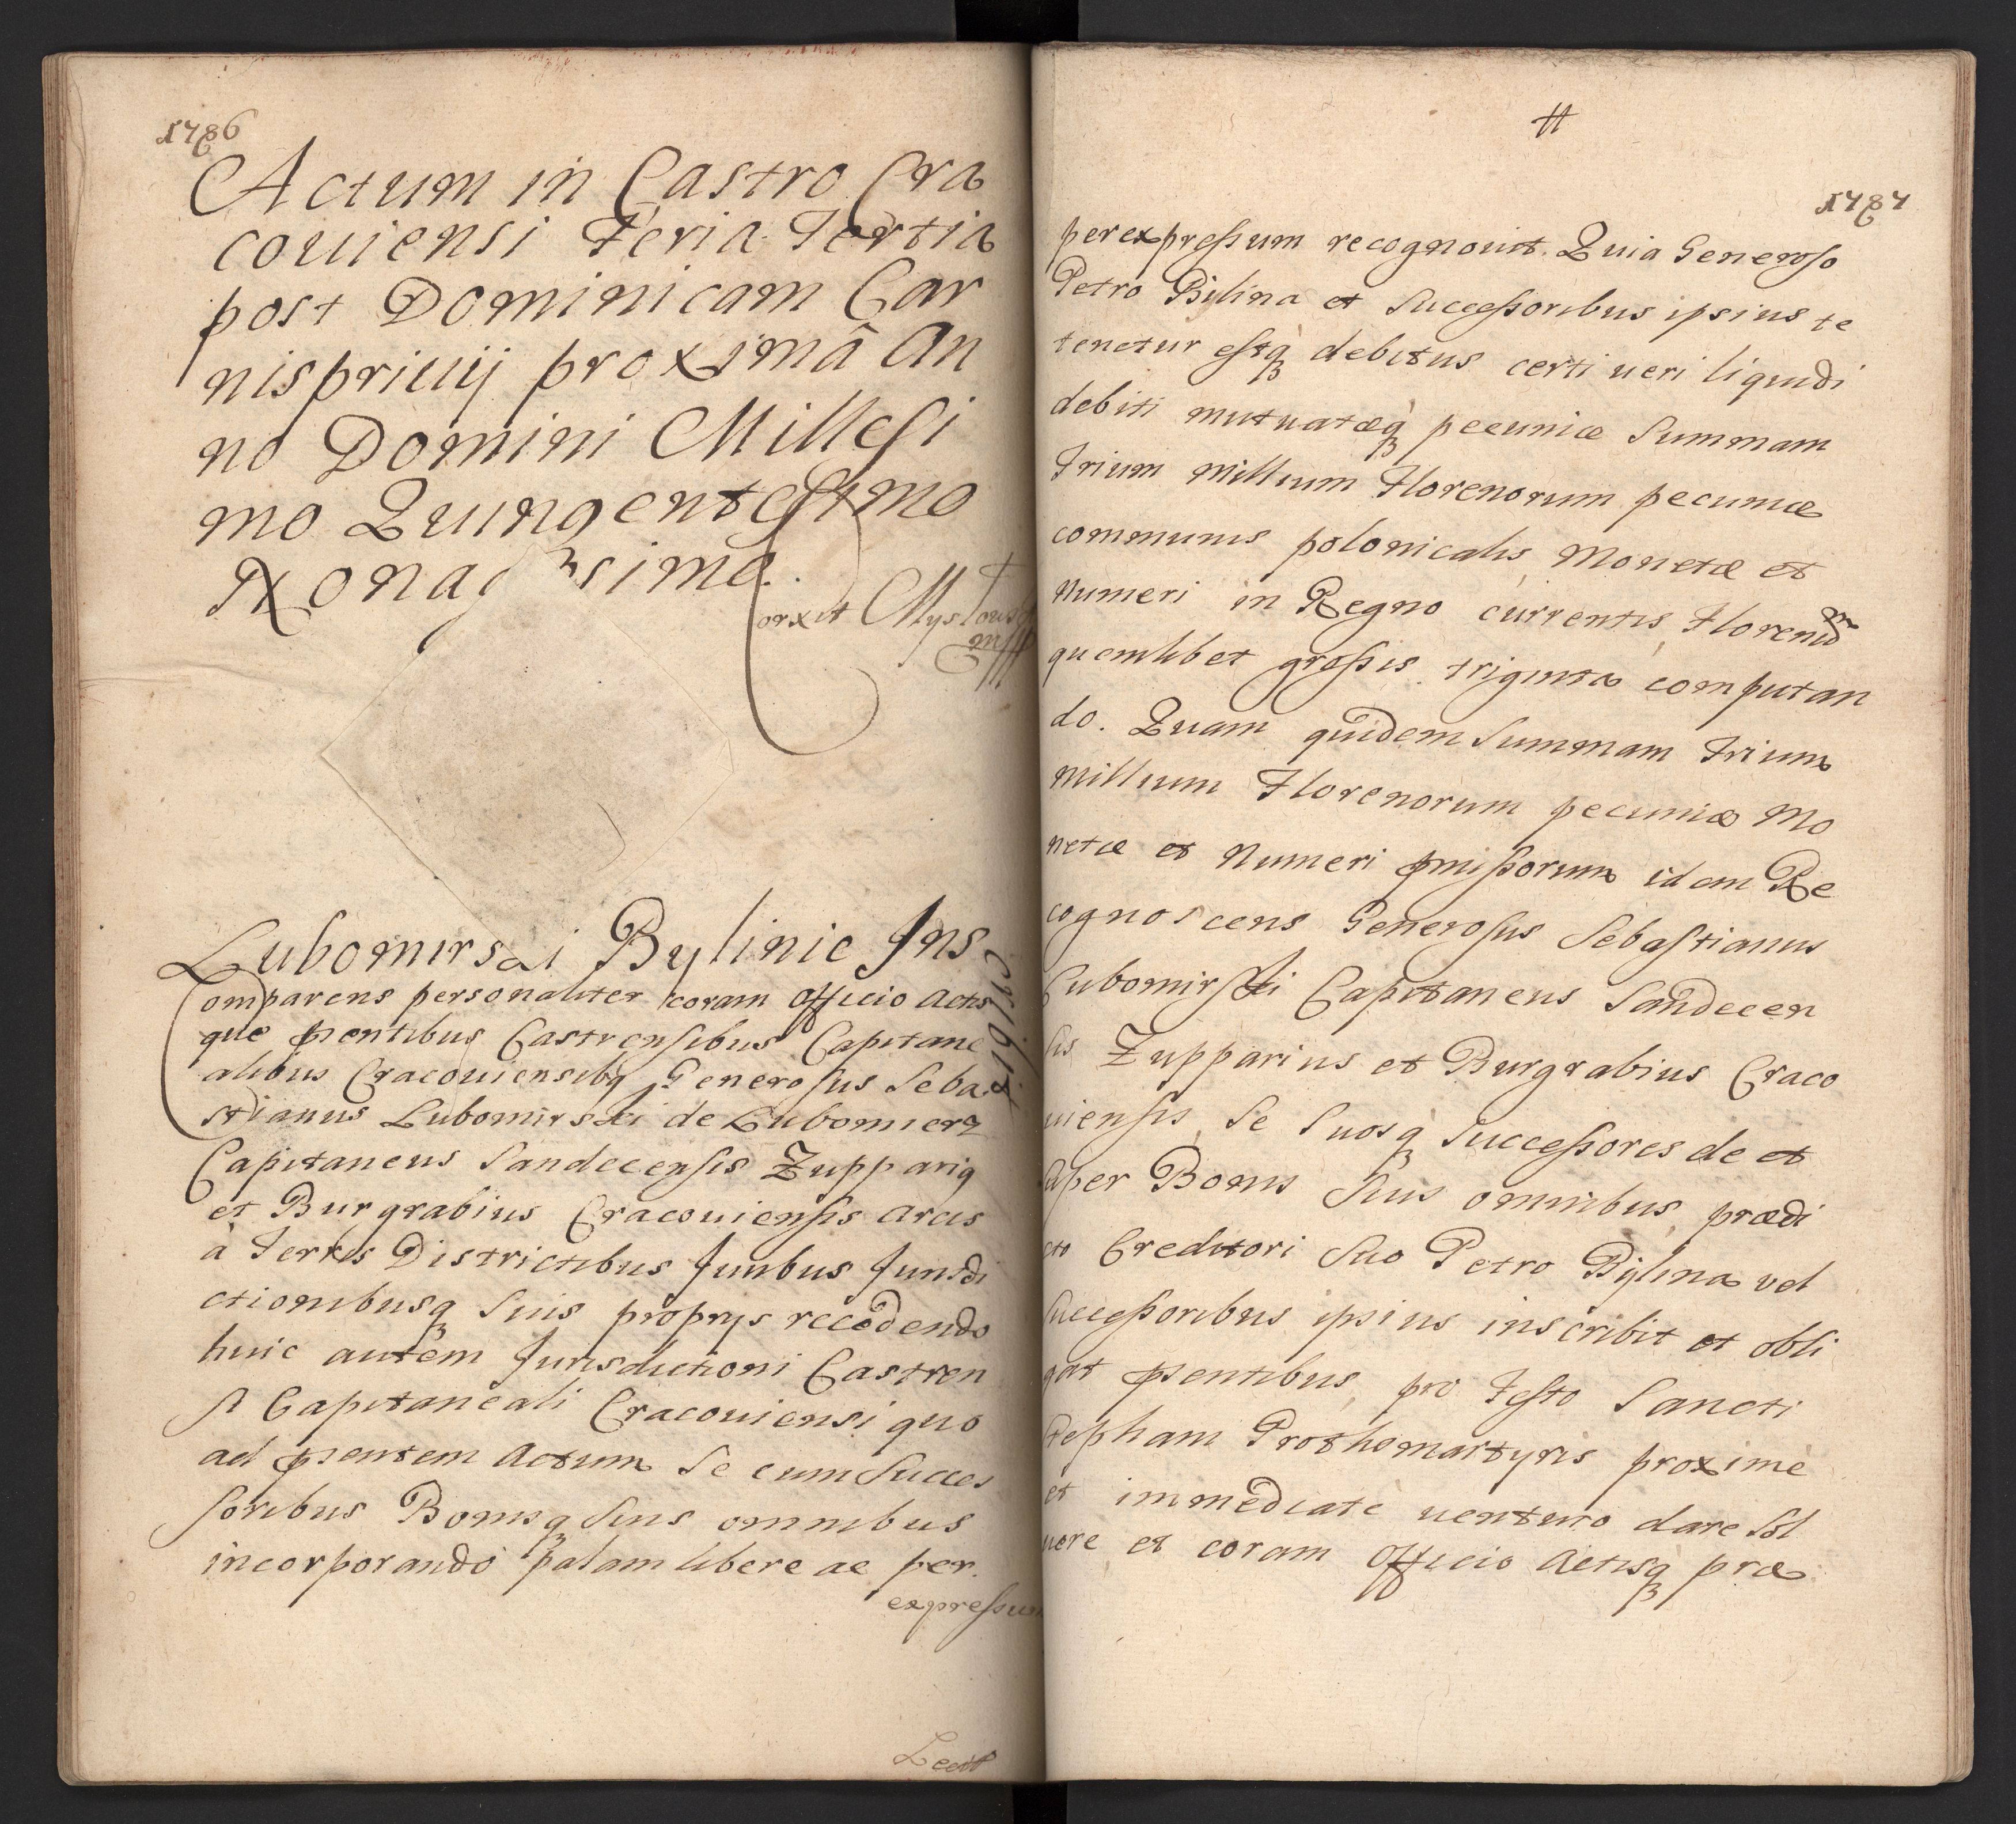 1786
Actum in Castro Cra
couiensi Feria Tertia
post Dominicam Car
nispriuij proximâ An
no Domini Millesi
mo Quingentesimo
Nonagesimo
Lubomirski Bylinie Ins
cribit
Comparens personaliter coram Officio Actis
que pñtibus Castrensibus Capitane
alibus Cracouiensibq Generosus Seba
stianus Lubomirski de Lubomierz
Capitaneus Sandecensis Zupparig
et Burgrabius Cracouiensis Arcis
à Terris Districtibus Juribus Jurisdi
ctionibusq suis proprijs recedendo
huic autem Jurisdictioni Castren
si Capitaneali Cracouiensi quo
ad pñtem Actum Se cum Succes
soribus Bonisq suis omnibus
incorporando palam libere ac per
expressum
Lectt
1787
perexpressum recognouit. Quia Generoso
Petro Bylina et Successoribus ipsius te
tenetur estq debitus certi ueri liquidi
debiti mutuatæq pecuniæ Summam
Trium millium Florenorum pecuniæ
communis polonicalis Monetæ et
Numeri in Regno currentis Florenũ
quemlibet grossis triginta computan
do. Quam quidem Summam Trium
Millium Florenorum pecuniæ Mo
netæ et Numeri pmissorum idem Re
cognoscens Generosus Sebastianus
Lubomirski Capitaneus Sandecen
sis Zupparius et Burgrabius Craco
uiensis Se Suosq Successores de et
super Bonis Suis omnibus prædi
cto Creditori Suo Petro Bylina vel
Successoribus ipsius inscribit et obli
gat pñtibus pro Festo Sancti
Stephani Prothomartyris proximè
et immediatè uenturo dare Sol
uere et coram Officio Actisq præ